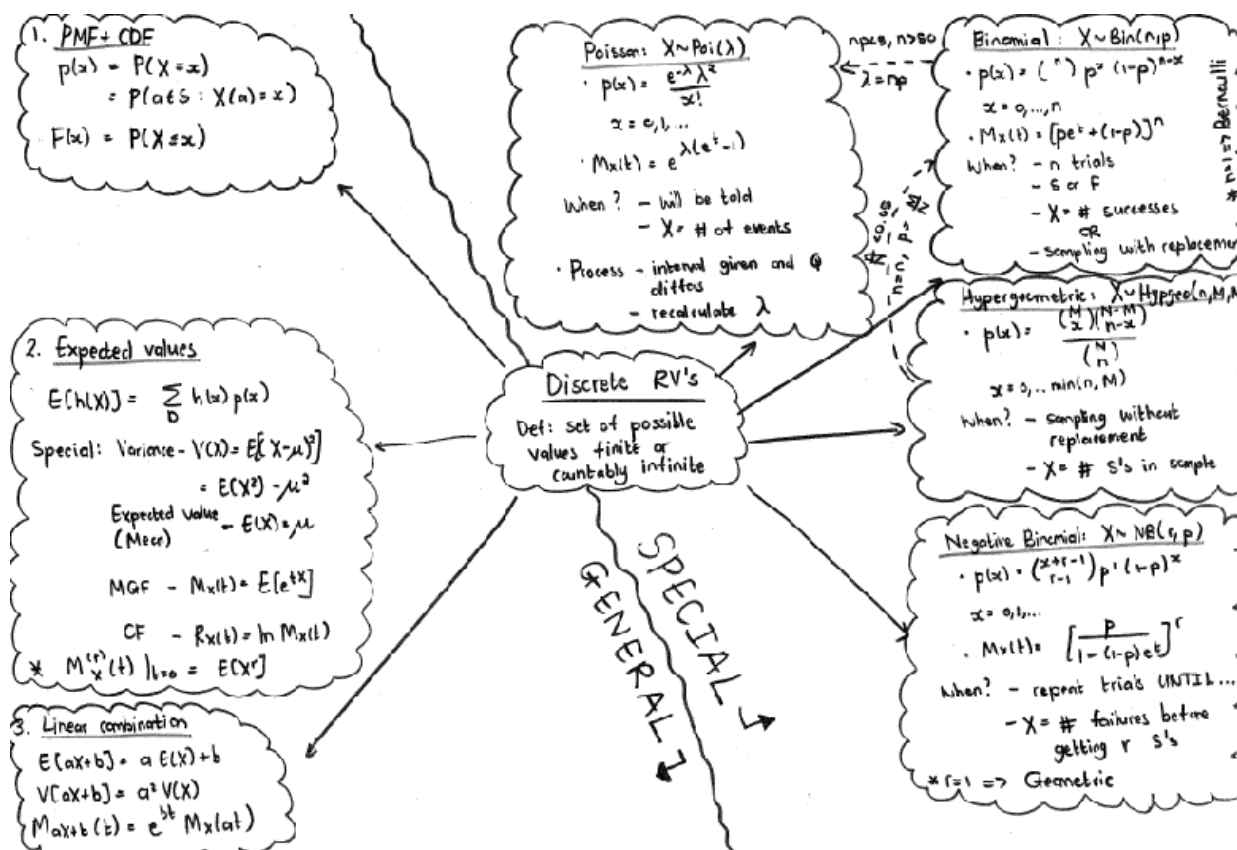 1. PMF + CDF
p(x) = P(X=x)
= P(a∈S : X(a)=x)
F(x) = P(X≤x)
2. Expected values
E[h(X)] = Σ_D h(x) p(x)
Special: Variance - V(X) = E[(X-μ)²]
= E(X²) - μ²
Expected value - E(X) = μ
(Mean)
MGF - Mx(t) = E[e^tX]
CF - Rx(t) = ln Mx(t)
* Mx^(r)(t)|t=0 = E[X^r]
3. Linear combination
E[aX+b] = a E(X)+b
V[aX+b] = a² V(X)
M aX+b (t) = e^bt Mx(at)
Discrete RV's
Def: set of possible
values finite or
countably infinite
SPECIAL
GENERAL
Poisson: X~Poi(λ)
· p(x) = e^-λ λ^x / x!
x = 0,1,...
· Mx(t) = e^λ(e^t-1)
When? - will be told
- X = # of events
· Process - interval given and Q
differs
- recalculate λ
n>50
λ = np
Binomial: X~Bin(n,p)
· p(x) = (n) p^x (1-p)^n-x
x = 0,...,n
· Mx(t) = [pe^t + (1-p)]^n
When? - n trials
- S or F
- X = # successes
OR
- sampling with replacement
* n=1 => Bernoulli
n/N <0.05
n=n, p= M/N
Hypergeometric: X~Hypgeo(n,M,N
· p(x) = (M x)(N-M n-x) / (N n)
x = 0,.. min(n, M)
When? - sampling without
replacement
- X = # S's in sample
Negative Binomial: X~NB(r,p)
· p(x) = (x+r-1 r-1) p^r (1-p)^x
x = 0,1,...
· Mx(t) = [p / 1-(1-p)e^t]^r
When? - repeat trials UNTIL...
- X = # failures before
getting r S's
* r=1 => Geometric